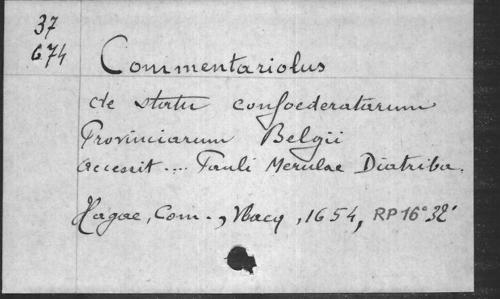 37
674
Commentariolus
de statu confoederatarum
Provinciarum Belgii
accessit ... Pauli Merulae Diatriba.
Hagae, Com., Vlacq, 1654, RP 16° 32'